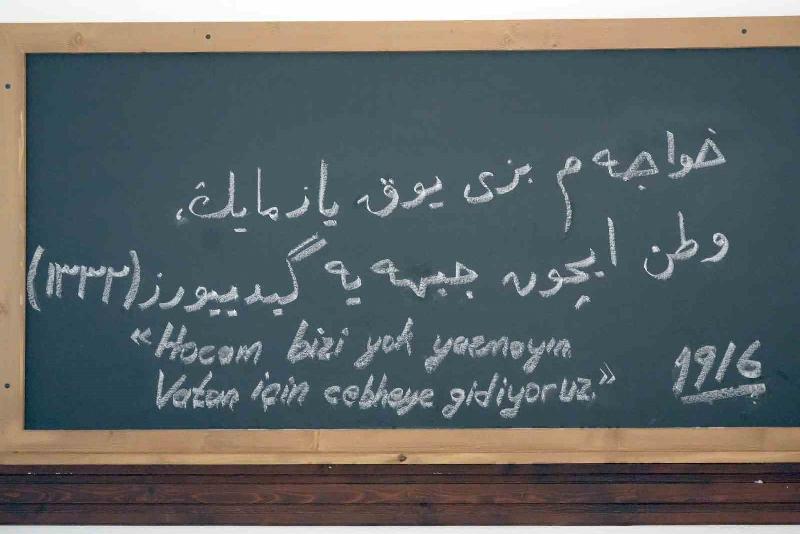 خواجه م بزی یوق یازمایڭ،
وطن ایچون جبهه یه گیدییورز (١٣٣٢)
«Hocam bizi yok yazmayın
Vatan için cebheye gidiyoruz.»
1916